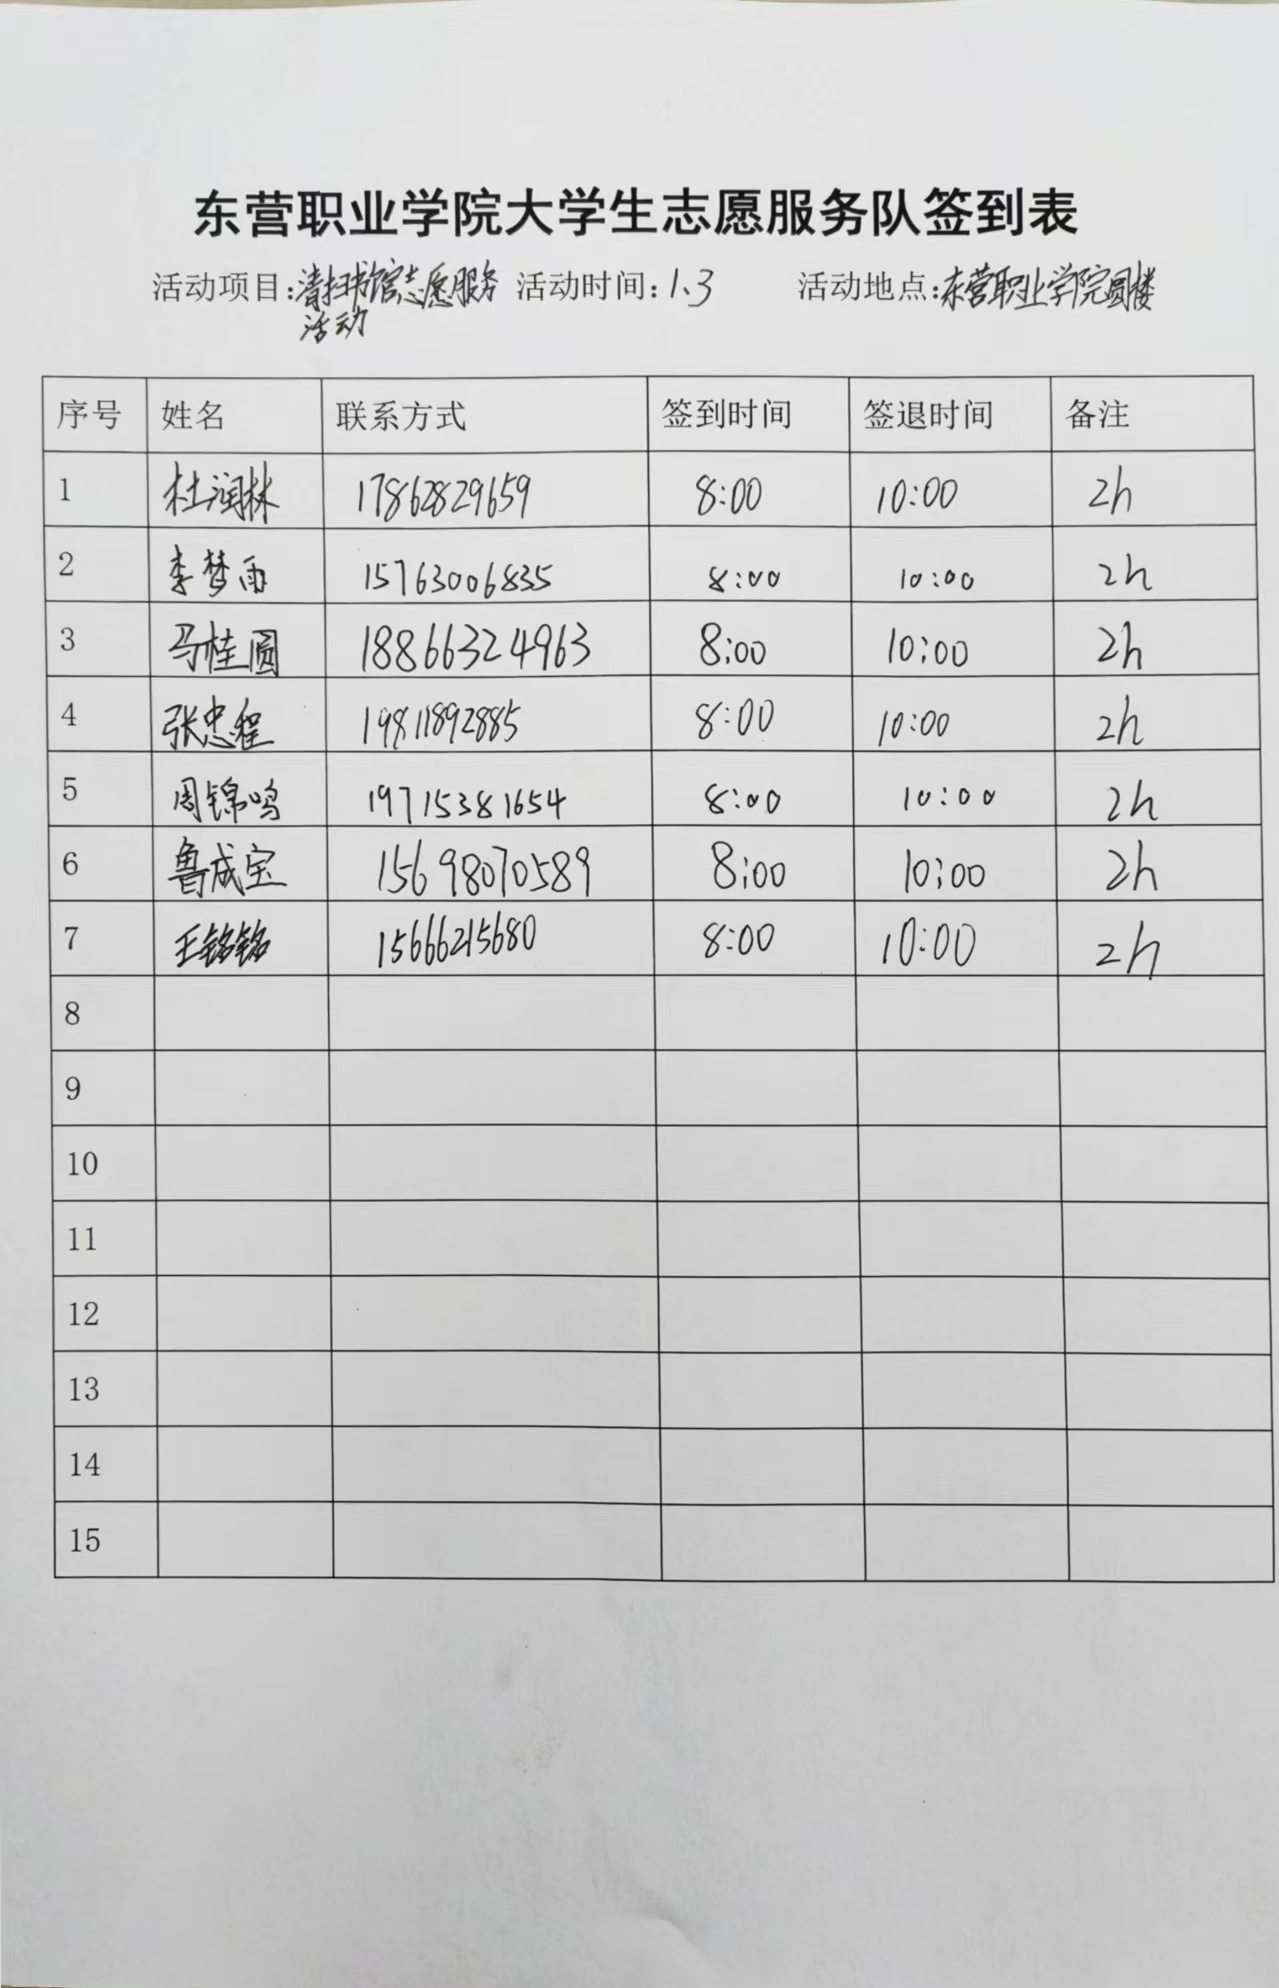 东营职业学院大学生志愿服务队签到表
活动项目:清扫书馆志愿服务 活动时间:1、3 活动地点:东营职业学院圆楼
活动
序号 姓名 联系方式 签到时间 签退时间 备注
1 杜润林 17862829659 8:00 10:00 2h
2 李梦雨 15763006835 8:00 10:00 2h
3 马桂圆 18866324963 8:00 10:00 2h
4 张忠程 19811892885 8:00 10:00 2h
5 周锦鸣 19715381654 8:00 10:00 2h
6 鲁成宝 15698070589 8:00 10:00 2h
7 王铭铭 15666215680 8:00 10:00 2h
8
9
10
11
12
13
14
15